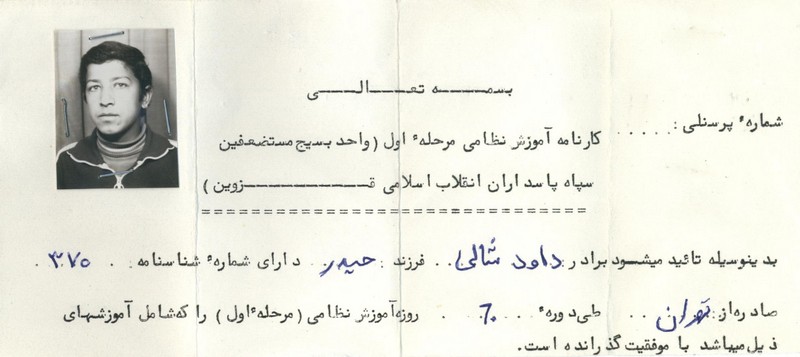 بسمه تعالی
شمارهٔ پرسنلی : .....
کارنامه آموزش نظامی مرحلهٔ اول ( واحد بسیج مستضعفین
سپاه پاسداران انقلاب اسلامی قزوین )
بدینوسیله تائید میشود برادر : داود شالی .. فرزند : حیدر .. دارای شمارهٔ شناسنامه : .. ۳۷۵ .
صادره از : تهران .. طی دورهٔ .... روزه آموزش نظامی ( مرحلهٔ اول ) را که شامل آموزشهای
ذیل میباشد با موفقیت گذرانده است.